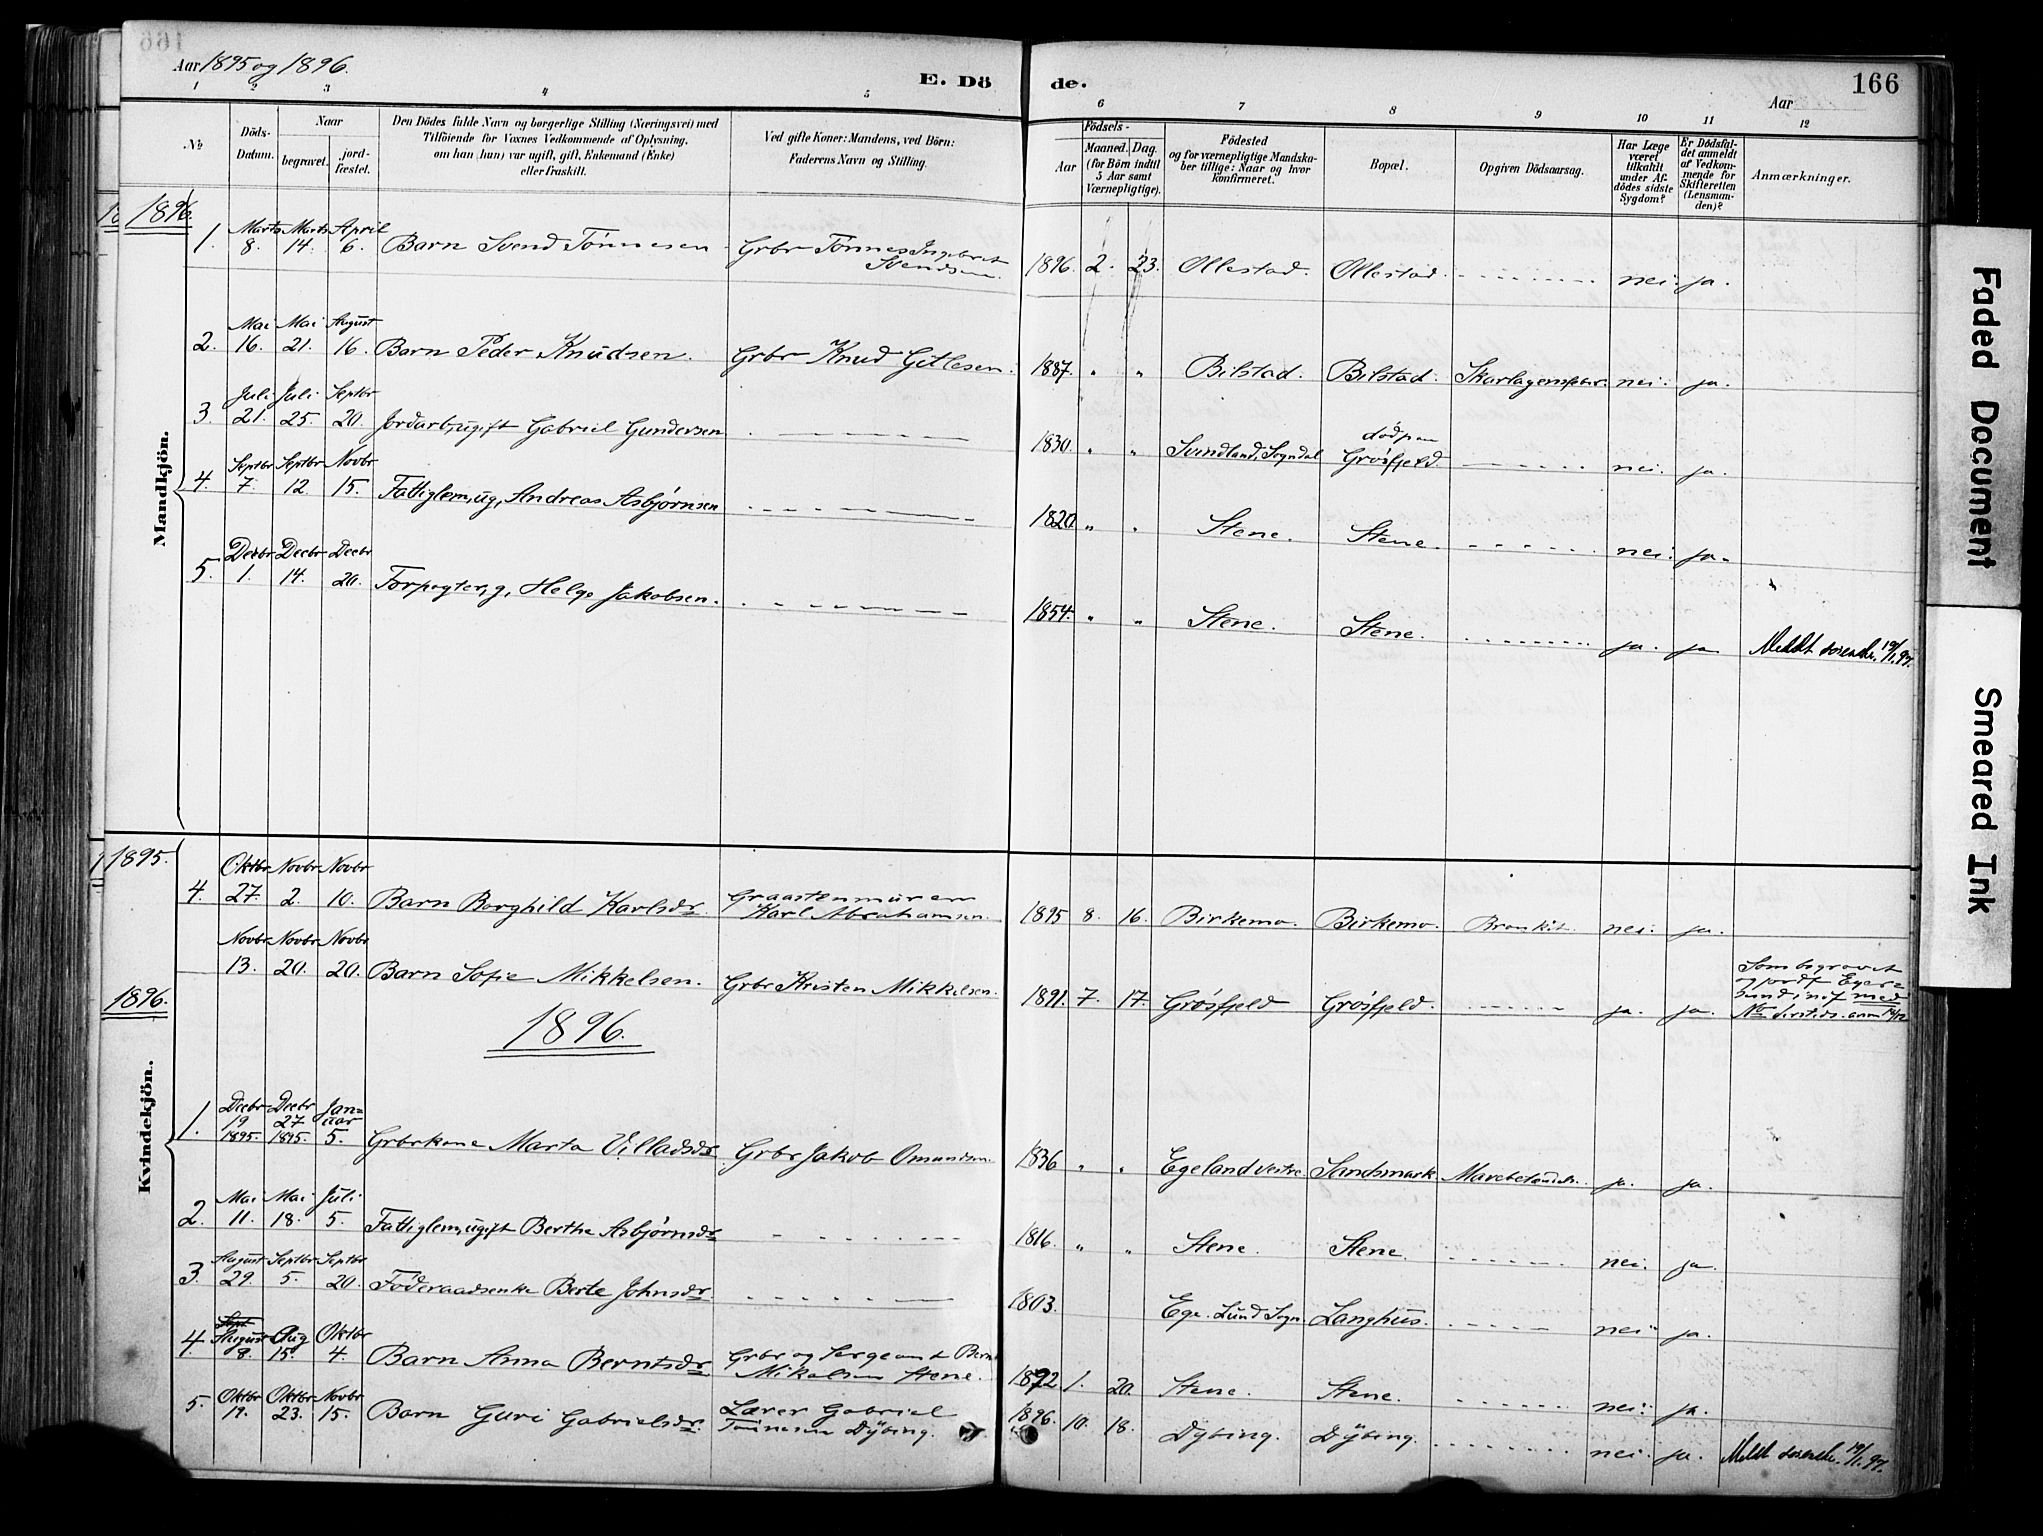 Aar 1895 og 1896.
E. Dö
de.
166
Aar
1 2 3 4 5 6 7 8 9 10 11 12
№
Döds-Datum.
Naar
begravet.
jord-fæstet.
Den Dödes fulde Navn og borgerlige Stilling (Næringsvei) med
Tilföiende for Voxnes Vedkommende af Oplysning,
om han (hun) var ugift, gift, Enkemand (Enke)
eller fraskilt.
Ved gifte Koner: Mandens, ved Börn:
Faderens Navn og Stilling.
Födsels-
Aar
Maaned. Dag.
(for Börn indtil
5 Aar samt
Værnepligtige).
Födested
og for værnepligtige Mandska-
ber tillige: Naar og hvor
konfirmeret.
Bopæl.
Opgiven Dödsaarsag.
Har Læge
været
tilkaldt
under Af-
dödes sidste
Sygdom?
Er Dödsfal-
det anmeldt
af Vedkom-
mende for
Skifteretten
(Lensman-
den)?
Anmærkninger.
Mandkjön.
1896.
1. Marts 8. Marts 14. April 6. Barn Svend Tönnesen Grbr Tönnes Ingebret Svendsen 1896. 2. 23. Ollestad. Ollestad. nei. ja.
2. Mai 16. Mai 21. August 16. Barn Peder Knudsen. Grbr Knud Gitlesen. 1887. " " Bilstad. Bilstad. Skarlagensfeber. nei. ja.
3. Juli 21. Juli 25. Septbr 20. Jordarb, ugift Gabriel Gundersen 1830. " " Svindland, Sogndal död paa Grösfjeld nei. ja.
4. Septbr 7. Septbr 12. Novbr 15. Fattiglem, ug, Andreas Asbjørnsen 1820 " " Stene. Stene. nei. ja.
5. Decbr 1. Decbr 14. Decbr 20. Forpagter, g, Helge Jakobsen. 1854. " " Stene. Stene. ja. ja. Meldt sorenskr. 19/1.97.
Kvindekjön.
1895.
4. Oktbr 27. Novbr 2. Novbr 10. Barn Borghild Karlsdr. Graastenmurer Karl Abrahamsen. 1895 8. 16. Birkemo. Birkemo. Bronkit. nei. ja.
Novbr 13. Novbr 20. Novbr 20. Barn Sofie Mikkelsen. Grbr Kristen Mikkelsen. 1891. 7. 17. Grösfjeld Grösfjeld. ja. ja. Som begravet og jordf Eger-sund, indf med No dersteds
1896.
1896.
1. Decbr 19 1895. Decbr 27 1895. Jan-uar 5. Grbrkone Marta Villadsdr Grbr Jakob Omundsen. 1836 " " Egeland vestre. Sandsmark. Mavebetændels. ja. ja.
2. Mai 11. Mai 18. Juli 5. Fattiglem, ugift Berthe Asbjørnsdr 1816. " " Stene. Stene. nei. ja.
3. August 29. Septbr 5. Septbr 20. Föderaadsenke Berte Johnsdr. 1803. Ege. Lund Sogn. Langhus. nei. ja.
4. Sept August 8. Aug 15. Oktbr 4. Barn Anna Berntsdr Grbr og Sergeant Bernt Mikalsen Stene. 1892 1. 20. Stene. Stene. nei. ja.
5. Oktbr 19. Oktbr 23. Novbr 15. Barn Guri Gabrielsdr. Lærer Gabriel Tönnesen Dybing. 1896. 10. 18. Dybing. Dybing. nei. ja. Meldt sorenskr. 19/1.97.
Faded Document
Smeared Ink